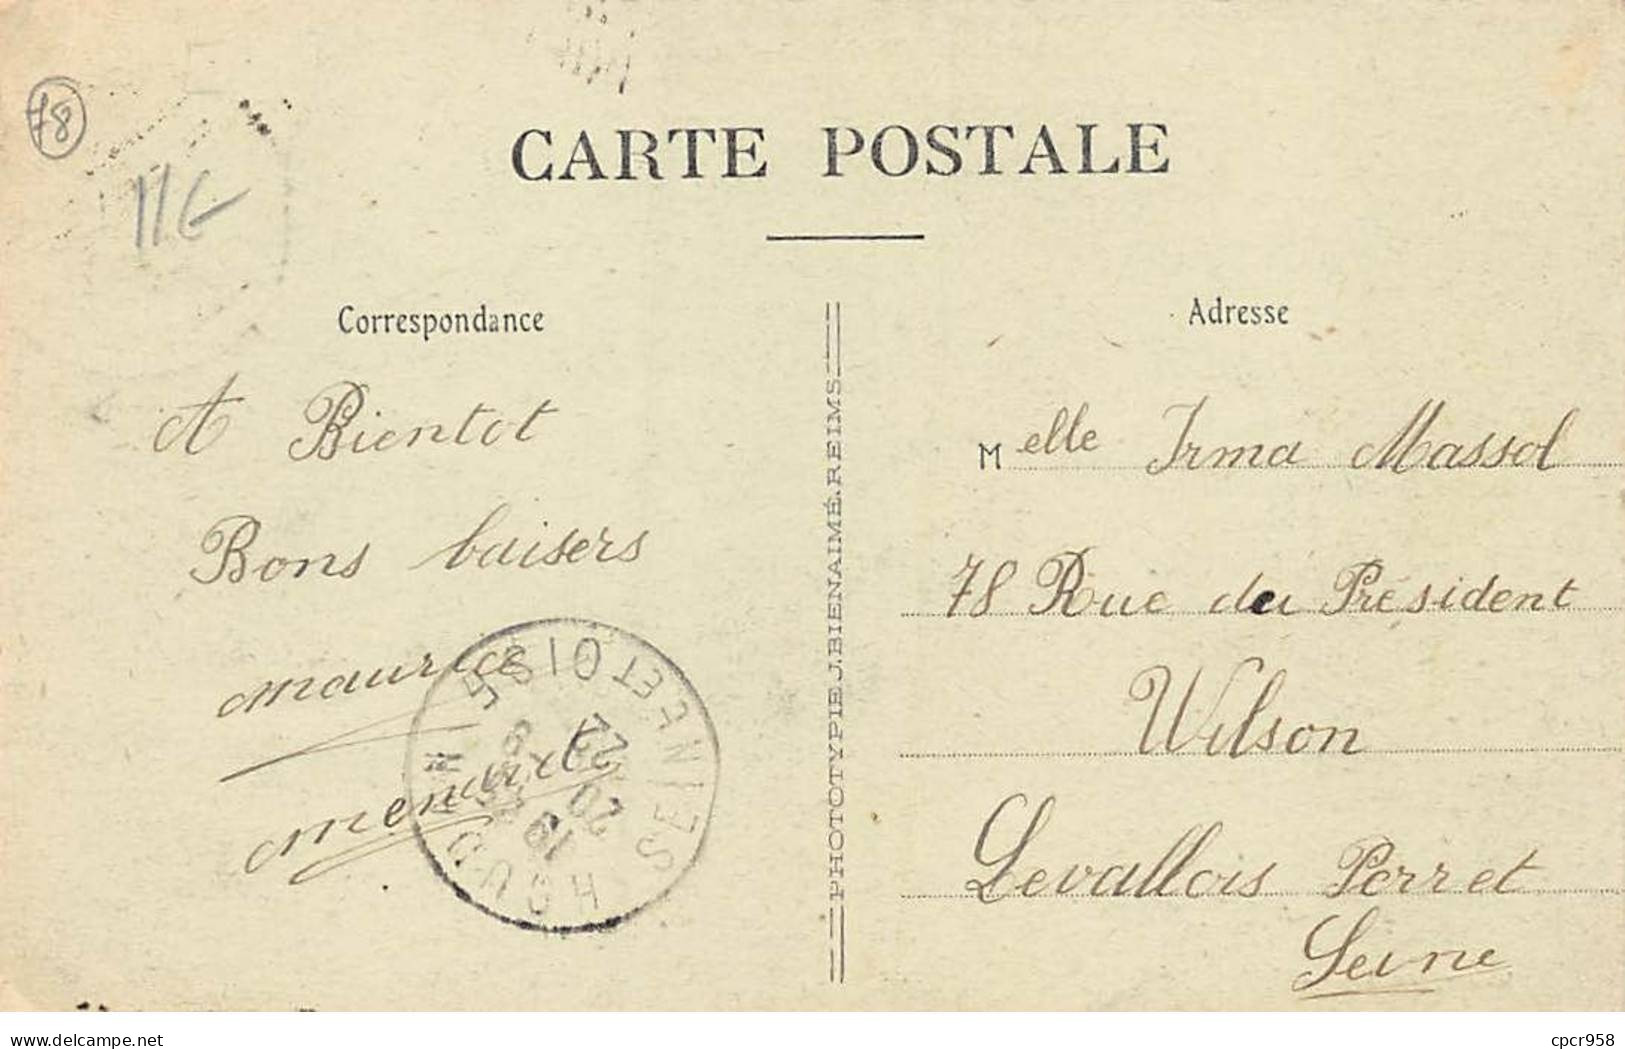 78
11€
CARTE POSTALE
Correspondance
Adresse
A Bientot
Bons baisers
maurice
PHOTOTYPIE J. BIENAIMÉ. REIMS
Melle Irma Massol
78 Rue du Président
Wilson
Levallois Perret
Seine
HOUDAN
SEINE ET OISE
19
20
22
delcampe.net
cpcr958